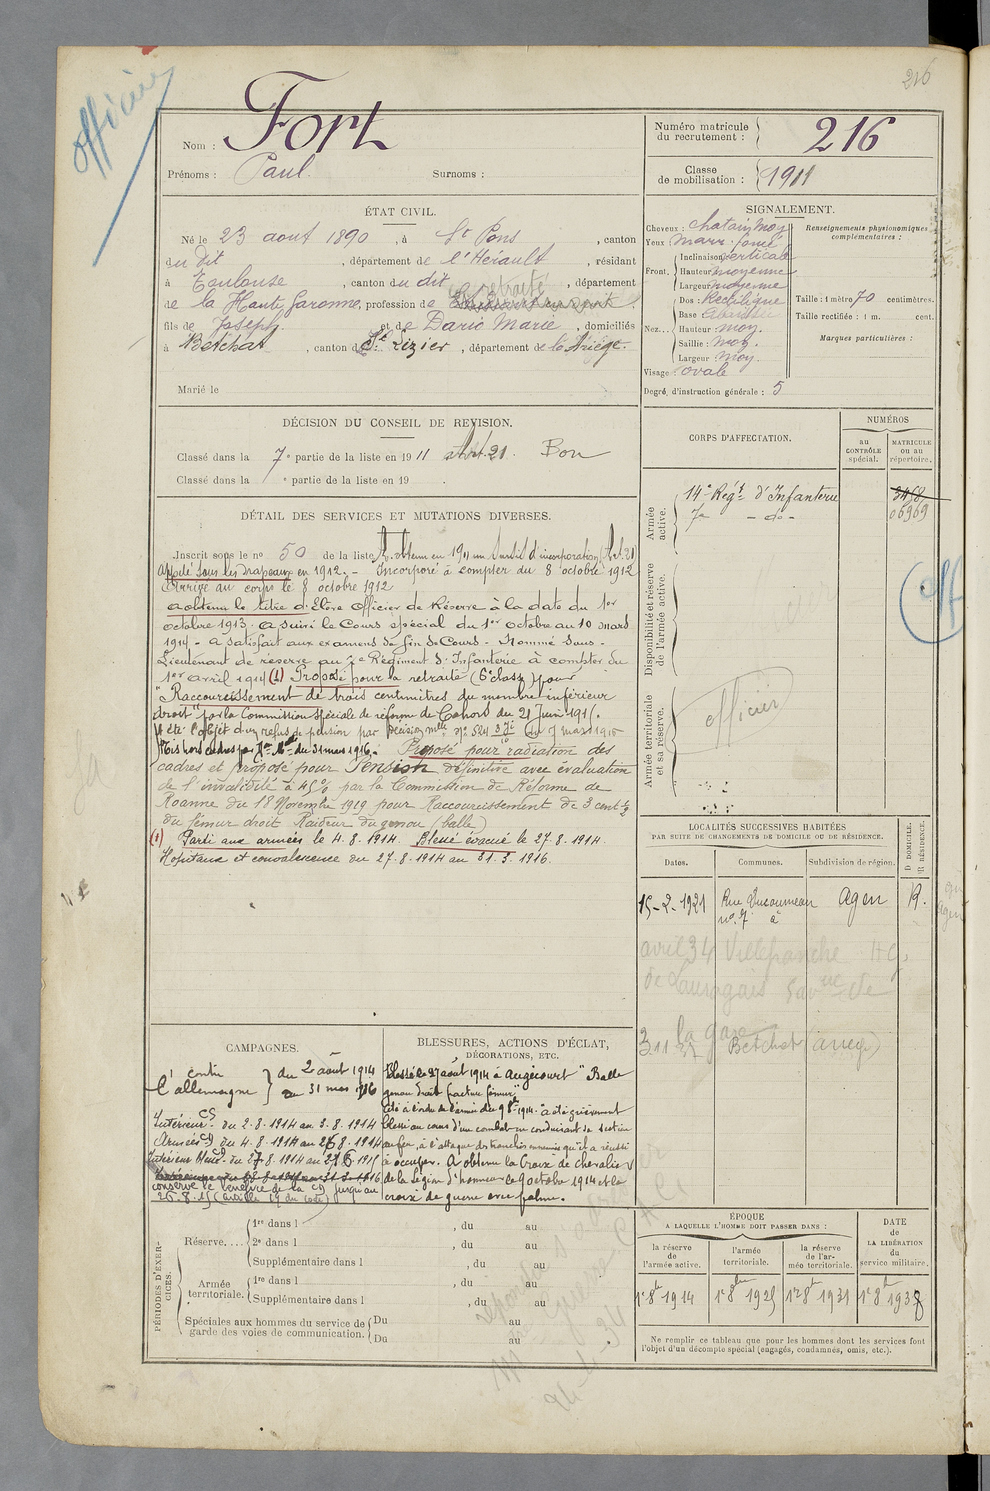 216
officier
Nom : Fort
Prénoms : Paul. Surnoms :
Numéro matricule du recrutement : 216
Classe de mobilisation : 1911
ÉTAT CIVIL.
Né le 23 aout 1890, à St Pons, canton
du dit, département de l'Hérault, résidant
à Toulouse, canton du dit, département
retraité
de la Haute Garonne, profession de
fils de Joseph et de Darie Marie, domiciliés
à Betchat, canton de St Lizier, département de l'Ariège.
Marié le
SIGNALEMENT.
Cheveux : chatain moy
Yeux marr. foncé
Front. Inclinaison verticale
Hauteur moyenne
Largeur moyenne
Nez... Dos : Rectiligne
Base
Hauteur moy.
Saillie : moy.
Largeur : moy.
Visage : ovale
Renseignements physionomiques complémentaires :
Taille : 1 mètre 70 centimètres.
Taille rectifiée : 1 m. cent.
Marques particulières :
Degré d'instruction générale : 5
DÉCISION DU CONSEIL DE REVISION.
Classé dans la 7e partie de la liste en 1911 Art. 21. Bon
Classé dans la e partie de la liste en 19 .
CORPS D'AFFECTATION.
NUMÉROS
au CONTRÔLE spécial.
MATRICULE ou au répertoire.
Armée active.
14e Régt d'Infanterie
7e - do -
06969
Disponibilité et réserve de l'armée active.
Off
Armée territoriale et sa réserve.
officier
DÉTAIL DES SERVICES ET MUTATIONS DIVERSES.
Inscrit sous le no 50 de la liste A obtenu en 1911 un sursis d'incorporation Art. 21
Appelé sous les drapeaux en 1912. - Incorporé à compter du 8 octobre 1912
Arrivé au corps le 8 octobre 1912
a obtenu le titre d'Elève Officier de Réserve à la date du 1er
octobre 1913. a suivi le Cours spécial du 1er octobre au 10 mars
1914 - a satisfait aux examens de fin de Cours - Nommé Sous-
Lieutenant de réserve au 7e Régiment d'Infanterie à compter du
1er avril 1914 (1) Proposé pour la retraite (6e classe) pour
"Raccourcissement de trois centimètres du membre inférieur
droit" par la Commission spéciale de réforme de Cahors du 21 Juin 1915.
A été l'objet d'un refus de pension par Décision mlle no 524 du 7 mars 1916
Mis hors cadres par du 31 mars 1916. Proposé pour radiation des
cadres et proposé pour Pension définitive avec évaluation
de l'invalidité à 45% par la Commission de Réforme de
Roanne du 18 Novembre 1919 pour Raccourcissement de 3 cent 1/2
du fémur droit. Raideur du genou (balle)
(1) Parti aux armées le 4.8.1914. Blessé évacué le 27.8.1914.
Hopitaux et convalescence du 27.8.1914 au 31.3.1916.
LOCALITÉS SUCCESSIVES HABITÉES
PAR SUITE DE CHANGEMENTS DE DOMICILE OU DE RÉSIDENCE.
Dates. Communes. Subdivision de région. D DOMICILE. R RÉSIDENCE.
15-2-1921 Rue Ducourneau Agen R.
no 7 à
avril 34 Villefranche HG.
de Lauragais de
la gare
Betchat (arieg.)
CAMPAGNES.
contre l'allemagne du 2 août 1914
au 31 mars 1916
Intérieur CS du 2.8.1914 au 3.8.1914
Armées CD du 4.8.1914 au 26.8.1914
Intérieur blessé CD du 27.8.1914 au 27.6.1915
conserve le bénéfice de la CD jusqu'au
26.8.15 (article 19 du code)
BLESSURES, ACTIONS D'ÉCLAT, DÉCORATIONS, ETC.
Blessé le 27 août 1914 à Angécourt "Balle
genou droit fracture fémur"
Cité à l'ordre de l'armée du 9 8bre 1914. "a été grièvement
blessé au cours d'un combat en conduisant sa section
au feu, à l'attaque des tranchées ennemies qu'il a réussi
à occuper. A obtenu la Croix de chevalier
de la Légion d'honneur le 9 octobre 1914 et la
croix de guerre avec palme.
PÉRIODES D'EXERCICES.
Réserve.... 1re dans l , du au
2e dans l , du au
Supplémentaire dans l , du au
Armée territoriale. 1re dans l , du au
Supplémentaire dans l , du au
Spéciales aux hommes du service de garde des voies de communication. Du au
Du au
ÉPOQUE
A LAQUELLE L'HOMME DOIT PASSER DANS :
la réserve de l'armée active.
l'armée territoriale.
la réserve de l'armée territoriale.
DATE DE LA LIBÉRATION du service militaire.
1er 8bre 1914 1er 8bre 1925 1er 8bre 1931 1er 8bre 1938
Ne remplir ce tableau que pour les hommes dont les services font
l'objet d'un décompte spécial (engagés, condamnés, omis, etc.).